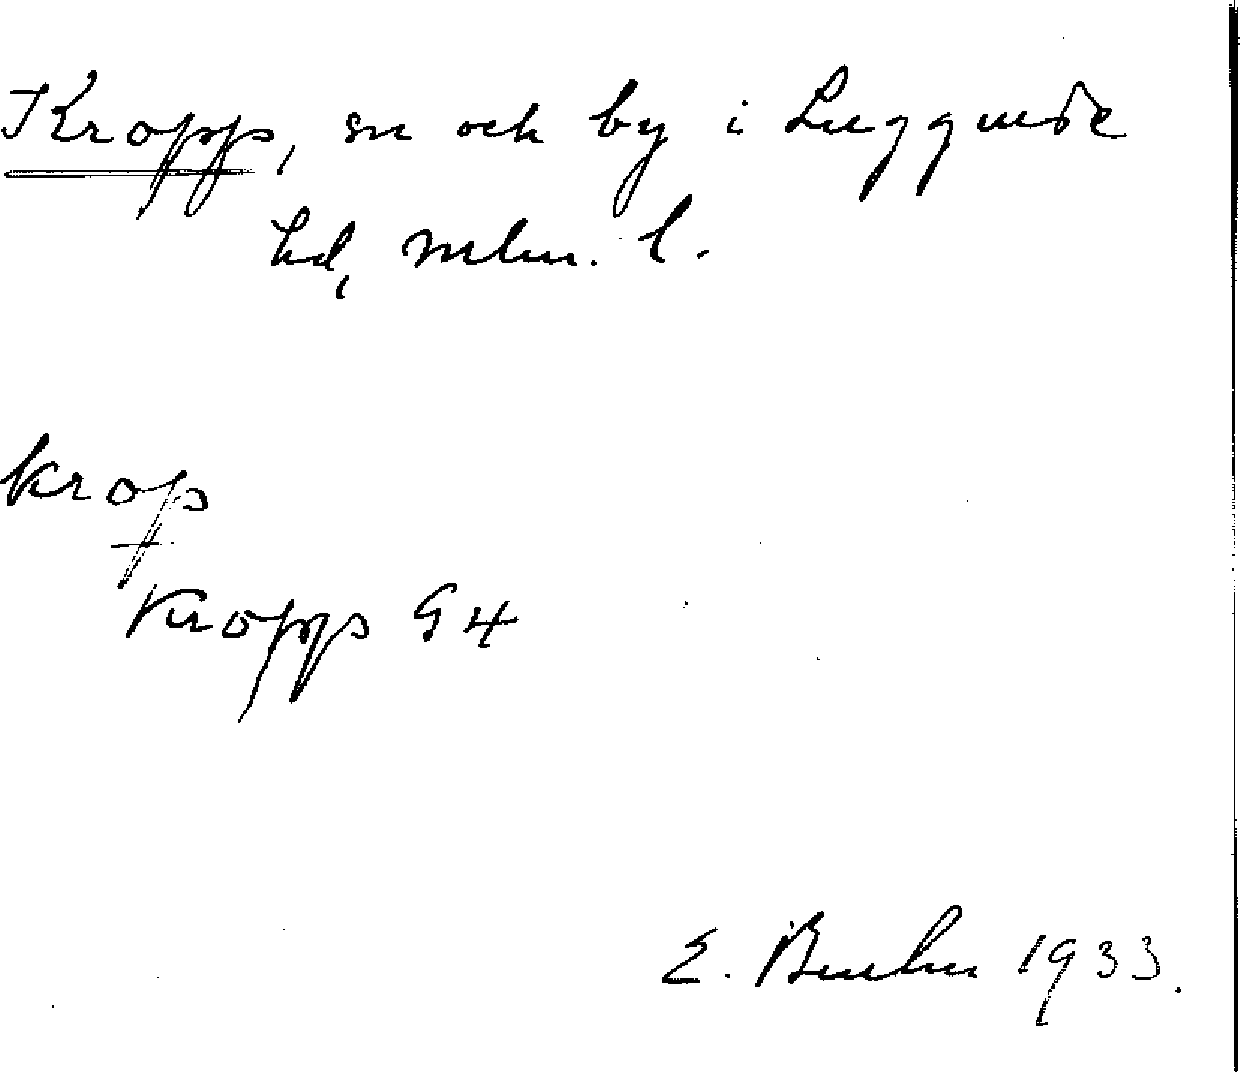 Kropp, sn och by i Luggude
hd, Mlm. l.
krop
Kropps G4
E. 1933.